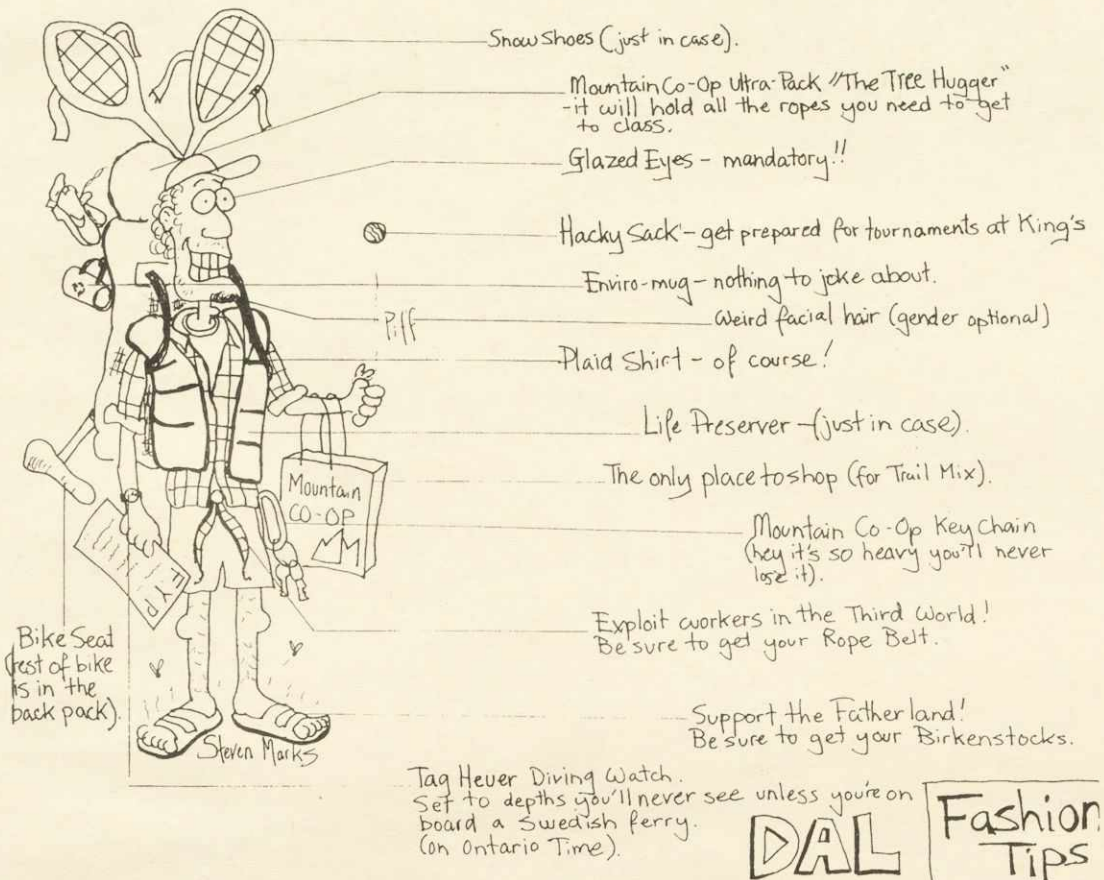 Snow Shoes (just in case).
Mountain Co-Op Ultra-Pack "The Tree Hugger"
-it will hold all the ropes you need to get
to class.
Glazed Eyes - mandatory!!
Hacky Sack - get prepared for tournaments at King's
Enviro-mug - nothing to joke about.
Weird facial hair (gender optional)
Piff
Plaid Shirt - of course!
Life Preserver - (just in case).
The only place to shop (for Trail Mix).
Mountain
CO-OP
Mountain Co-Op Key Chain
(hey it's so heavy you'll never
lose it).
FYP
Exploit workers in the Third World!
Be sure to get your Rope Belt.
Bike Seat
(rest of bike
is in the
back pack).
Support the Fatherland!
Be sure to get your Birkenstocks.
Steven Marks
Tag Heuer Diving Watch.
Set to depths you'll never see unless you're on
board a Swedish ferry.
(on Ontario Time).
DAL
Fashion
Tips